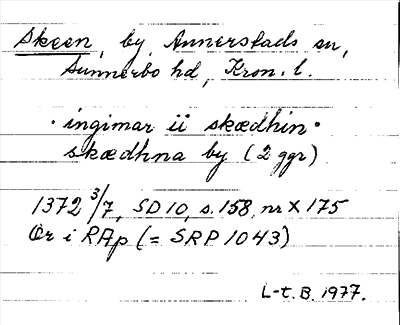 Skeen, by, Annerstads sn,
Sunnerbo hd, Kron. l.
· ingimar ii skædhin ·
skædhna by (2 ggr)
1372 3/7, SD 10, s. 158, nr X 175
Or i RAp (= SRP 1043)
L-t. B. 1977.